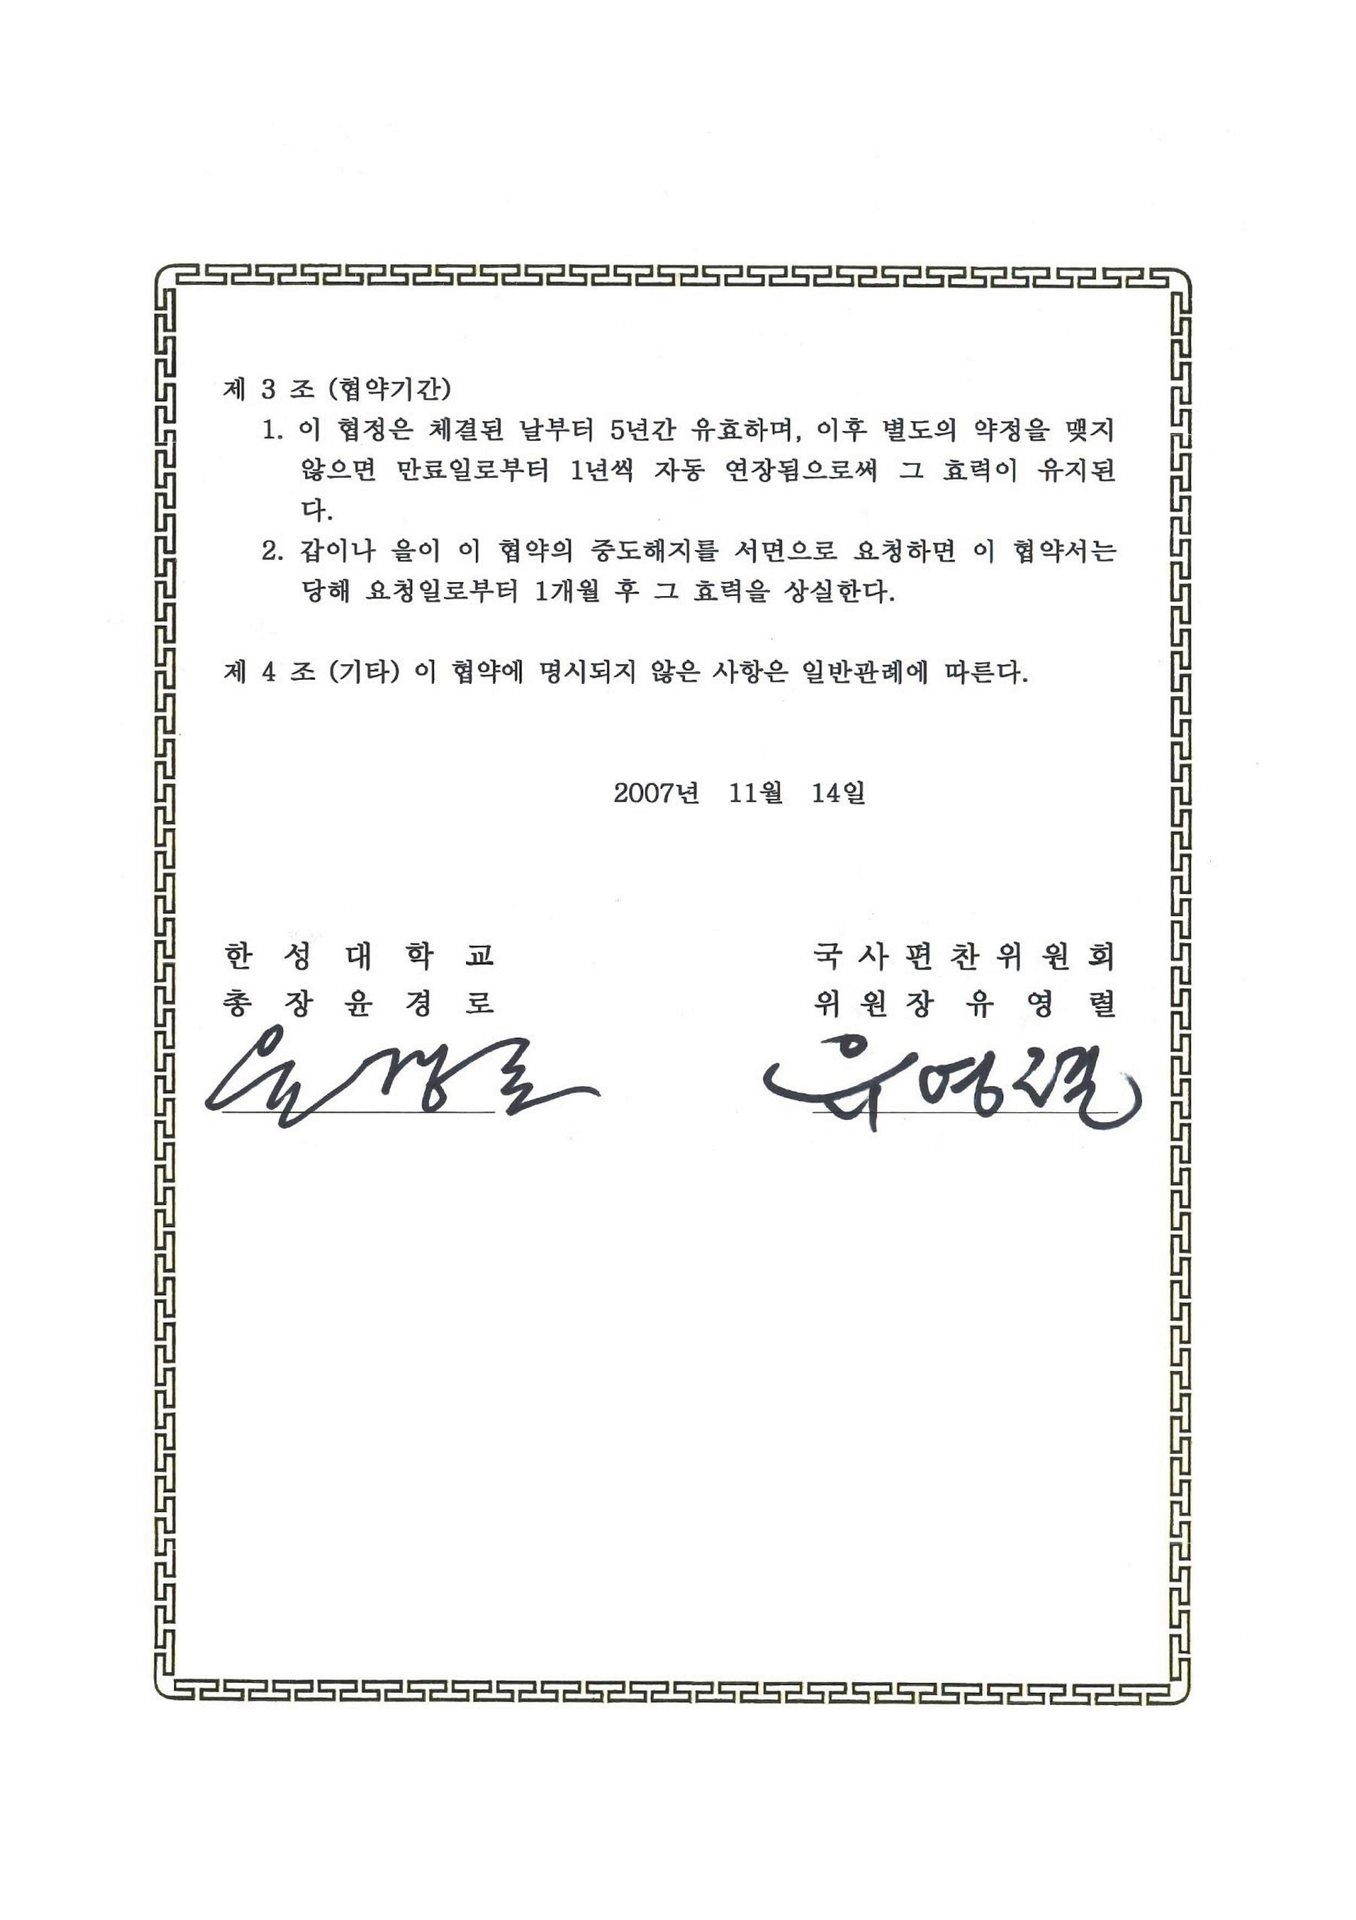 제 3 조 (협약기간)
1. 이 협정은 체결된 날부터 5년간 유효하며, 이후 별도의 약정을 맺지
않으면 만료일로부터 1년씩 자동 연장됨으로써 그 효력이 유지된
다.
2. 갑이나 을이 이 협약의 중도해지를 서면으로 요청하면 이 협약서는
당해 요청일로부터 1개월 후 그 효력을 상실한다.
제 4 조 (기타) 이 협약에 명시되지 않은 사항은 일반관례에 따른다.
2007년 11월 14일
한 성 대 학 교
총 장 윤 경 로
윤경로
국 사 편 찬 위 원 회
위 원 장 유 영 렬
유영렬